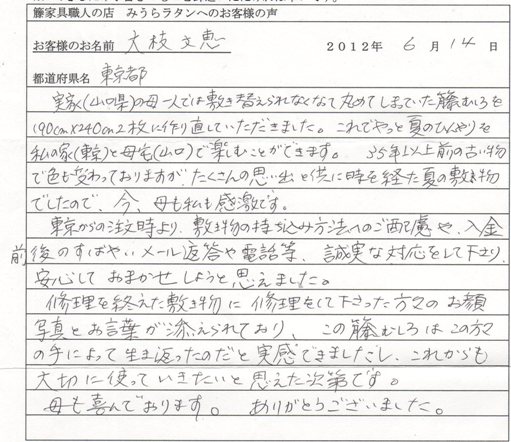 籐家具職人の店　みうらラタンへのお客様の声
お客様のお名前　大枝文恵　2012年　6月　14日
都道府県名　東京都
実家(山口県)の母一人では敷き替えられなくなって丸めてしまっていた籐むしろを
190cm×240cm2枚に作り直していただきました。これでやっと夏のひんやりを
私の家(東京)と母宅(山口)で楽しむことができます。　35年以上前の古い物
で色も変わっておりますが、たくさんの思い出と供に時を経た夏の敷き物
でしたので、今、母も私も感激です。
東京からの注文時より、敷き物の持ち込み方法へのご配慮や、入金
前後のすばやいメール返答や電話等、誠実な対応をして下さり、
安心しておまかせしようと思えました。
修理を終えた敷き物に修理をして下さった方々のお顔
写真とお言葉が添えられており、この籐むしろはこの方々
の手によって生き返ったのだと実感できましたし、これからも
大切に使っていきたいと思えた次第です。
母も喜んでおります。　ありがとうございました。